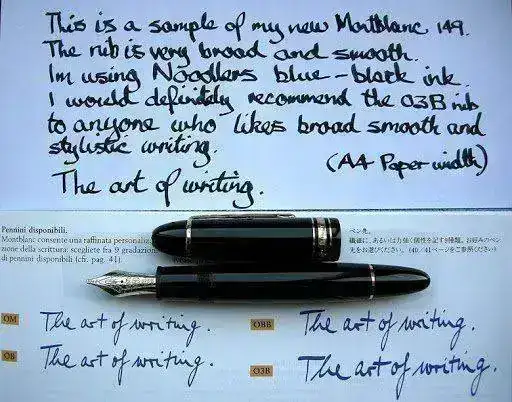 This is a sample of my new Montblanc 149.
The nib is very broad and smooth.
Im using Noodlers blue-black ink.
I would definitely recommend the O3B nib
to anyone who likes broad smooth and
stylistic writing.
(A4 Paper width)
The art of writing.
Pennini disponibili.
Montblanc consente una raffinata personaliz
zione della scrittura: scegliete fra 9 gradazion
di pennini disponibili (cfr. pag. 41).
ペン先。
繊細に、あるいは力強く個性を記す9種類。お好みのペン
先をお選びください。(40/41ページをご参照ください)
OM The art of writing.
OBB The art of writing.
OB The art of writing.
O3B The art of writing.